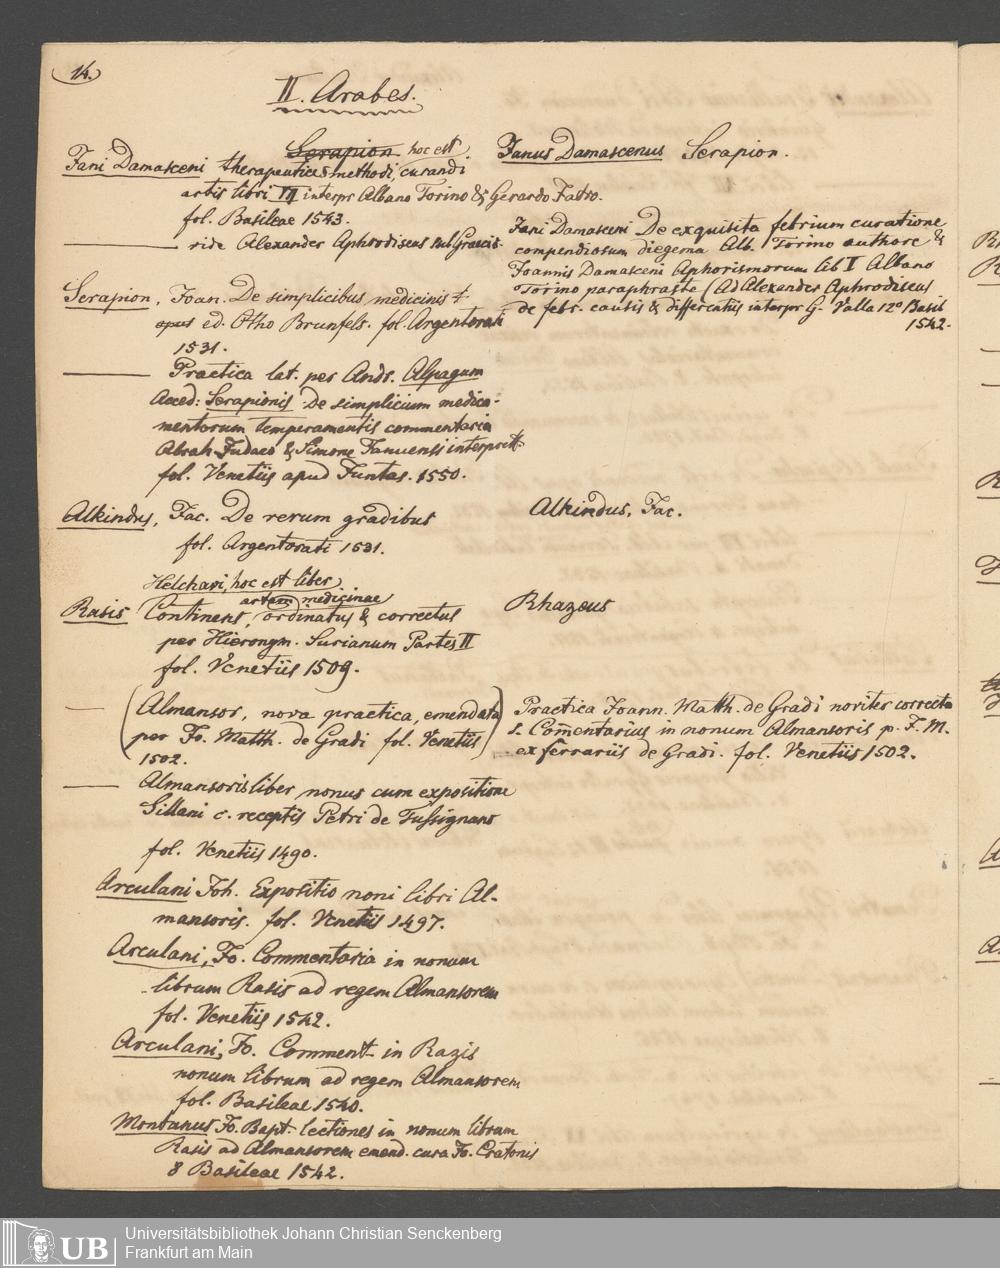 14.
II. Arabes.
Serapion hoc est
Jani Damasceni therapeutices methodi, curandi
artis libri VII interpr Albano Torino & Gerardo Jatro.
fol. Basileae 1543.
vide Alexander Aphrodiseus sub Graecis.
Serapion, Joan. De simplicibus medicinis
opus ed. Otho Brunfels. fol. Argentorati
1531.
Practica lat. per Andr. Alpagum
Acced: Serapionis De simplicium medica-
mentorum temperamentis commentaria
Abrah. Judaeo & Simone Januensi interprett.
fol. Venetiis apud Juntas. 1550.
Alkindus, Jac. De rerum gradibus
fol. Argentorati 1531.
Helchavi, hoc est liber
artem medicinae
Rasis Continens, ordinatus & correctus
per Hieronym. Surianum Partes II
fol. Venetiis 1509.
(Almansor, nova practica, emendata
per Jo. Matth. de Gradi fol. Venetiis)
1502.
Almansoris liber nonus cum expositione
Sillani c. receptis Petri de Tussignano
fol. Venetiis 1490.
Arculani Joh. Expositio noni libri Al-
mansoris. fol. Venetiis 1497.
Arculani, Jo. Commentaria in nonum
librum Rasis ad regem Almansorem
fol. Venetiis 1542.
Arculani, Jo. Comment. in Razis
nonum librum ad regem Almansorem
fol. Basileae 1540.
Montanus Jo. Bapt. lectiones in nonum librum
Rasis ad Almansorem emend. cura Jo. Cratonis
8 Basileae 1542.
Janus Damascenus Serapion.
Jani Damasceni De exquisita febrium curatione
compendiosum diegema Alb. Torino authore &
Joannis Damasceni Aphorismorum lib I Albano
Torino paraphraste (Ad Alexander Aphrodiseus
de febr. causis & differentiis interpr G. Valla 12o Basil
1542.
Alkindus, Jac.
Rhazeus
Practica Joann. Matth. de Gradi noviter correcta
s. Com̅entarius in nonum Almansoris p. J. M.
ex ferrariis de Gradi. fol. Venetiis 1502.
UB
Universitätsbibliothek Johann Christian Senckenberg
Frankfurt am Main